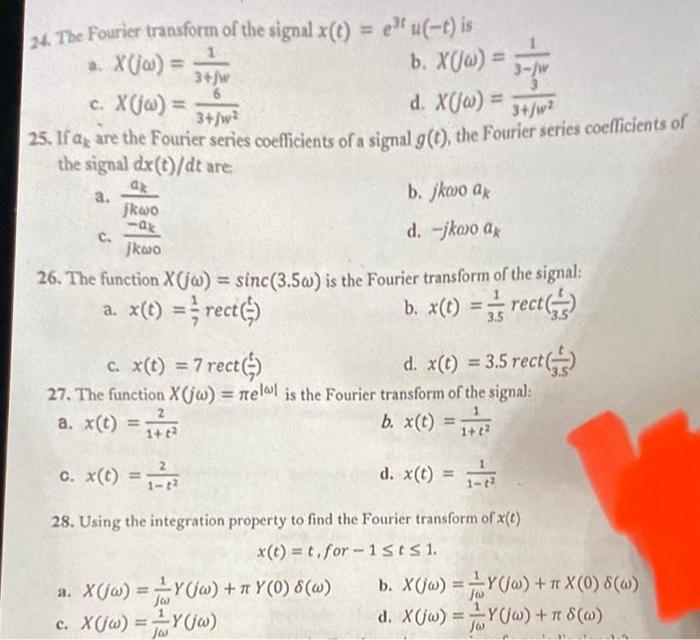 24. The Fourier transform of the signal x(t) = e^{3t} u(-t) is
a. X(jω) = 1/(3+jw) b. X(jω) = 1/(3-jw)
c. X(jω) = 6/(3+jw²) d. X(jω) = 3/(3+jw²)
25. If a_k are the Fourier series coefficients of a signal g(t), the Fourier series coefficients of
the signal dx(t)/dt are:
a. a_k/(jkωo) b. jkωo a_k
c. -a_k/(jkωo) d. -jkωo a_k
26. The function X(jω) = sinc(3.5ω) is the Fourier transform of the signal:
a. x(t) = 1/7 rect(t/7) b. x(t) = 1/3.5 rect(t/3.5)
c. x(t) = 7 rect(t/7) d. x(t) = 3.5 rect(t/3.5)
27. The function X(jω) = πe^{|ω|} is the Fourier transform of the signal:
a. x(t) = 2/(1+t²) b. x(t) = 1/(1+t²)
c. x(t) = 2/(1-t²) d. x(t) = 1/(1-t²)
28. Using the integration property to find the Fourier transform of x(t)
x(t) = t, for − 1 ≤ t ≤ 1.
a. X(jω) = 1/(jω) Y(jω) + π Y(0) δ(ω) b. X(jω) = 1/(jω) Y(jω) + π X(0) δ(ω)
c. X(jω) = 1/(jω) Y(jω) d. X(jω) = 1/(jω) Y(jω) + π δ(ω)